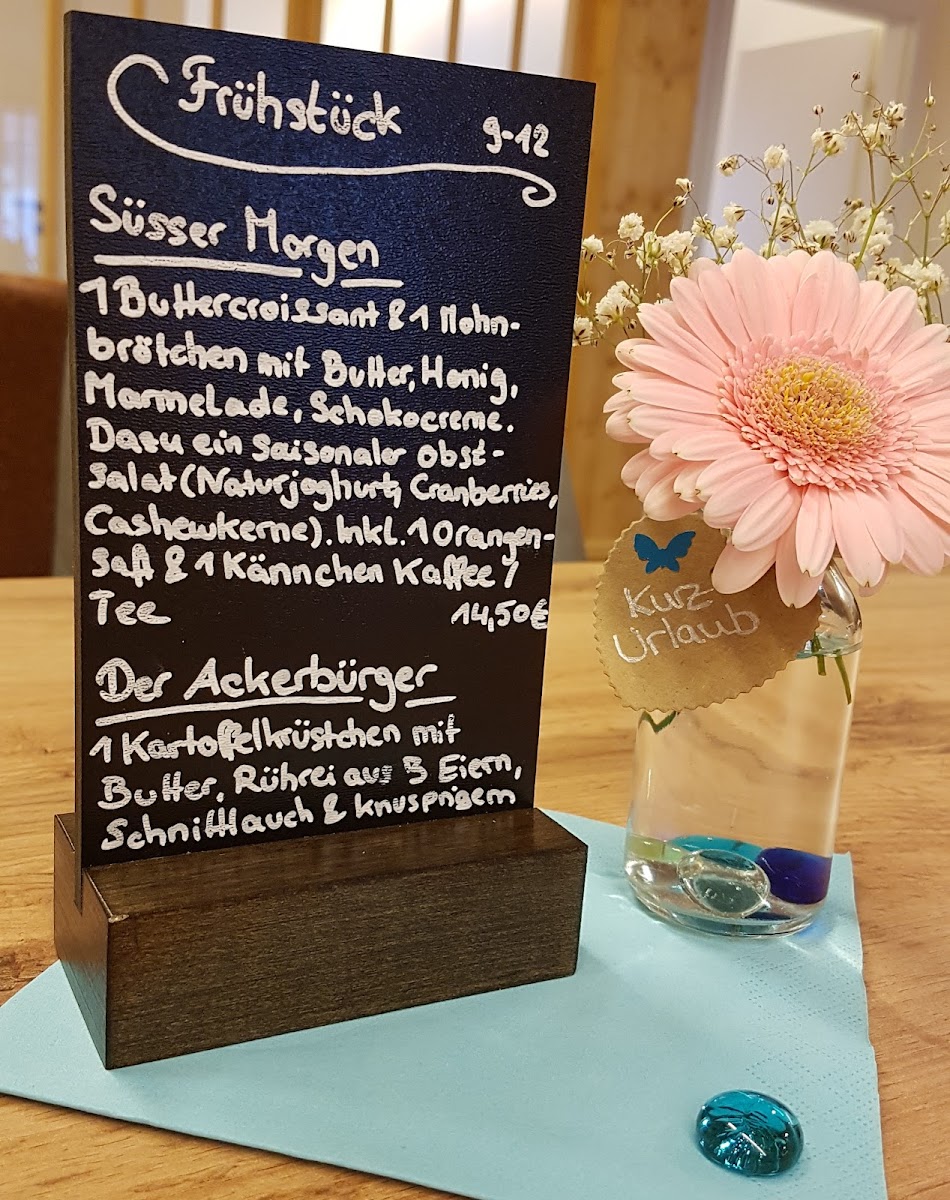 Frühstück
9-12
Süsser Morgen
1 Buttercroissant & 1 Mohn-
brötchen mit Butter, Honig,
Marmelade, Schokocreme.
Dazu ein saisonaler Obst-
salat (Naturjoghurt, Cranberries,
Cashewkerne). Inkl. 1 Orangen-
saft & 1 Kännchen Kaffee /
Tee 14,50€
Der Ackerbürger
1 Kartoffelkrüstchen mit
Butter, Rührei aus 3 Eiern,
Schnittlauch & knusprigem
Kurz
Urlaub